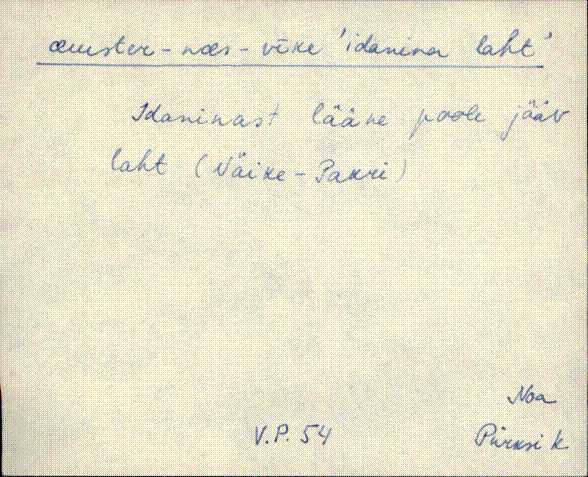 œuster-nœs-vīke 'idanina laht'
Idaninast lääne poole jääv
laht (Väike-Pakri)
Noa
V.P. 54 Pürksi k